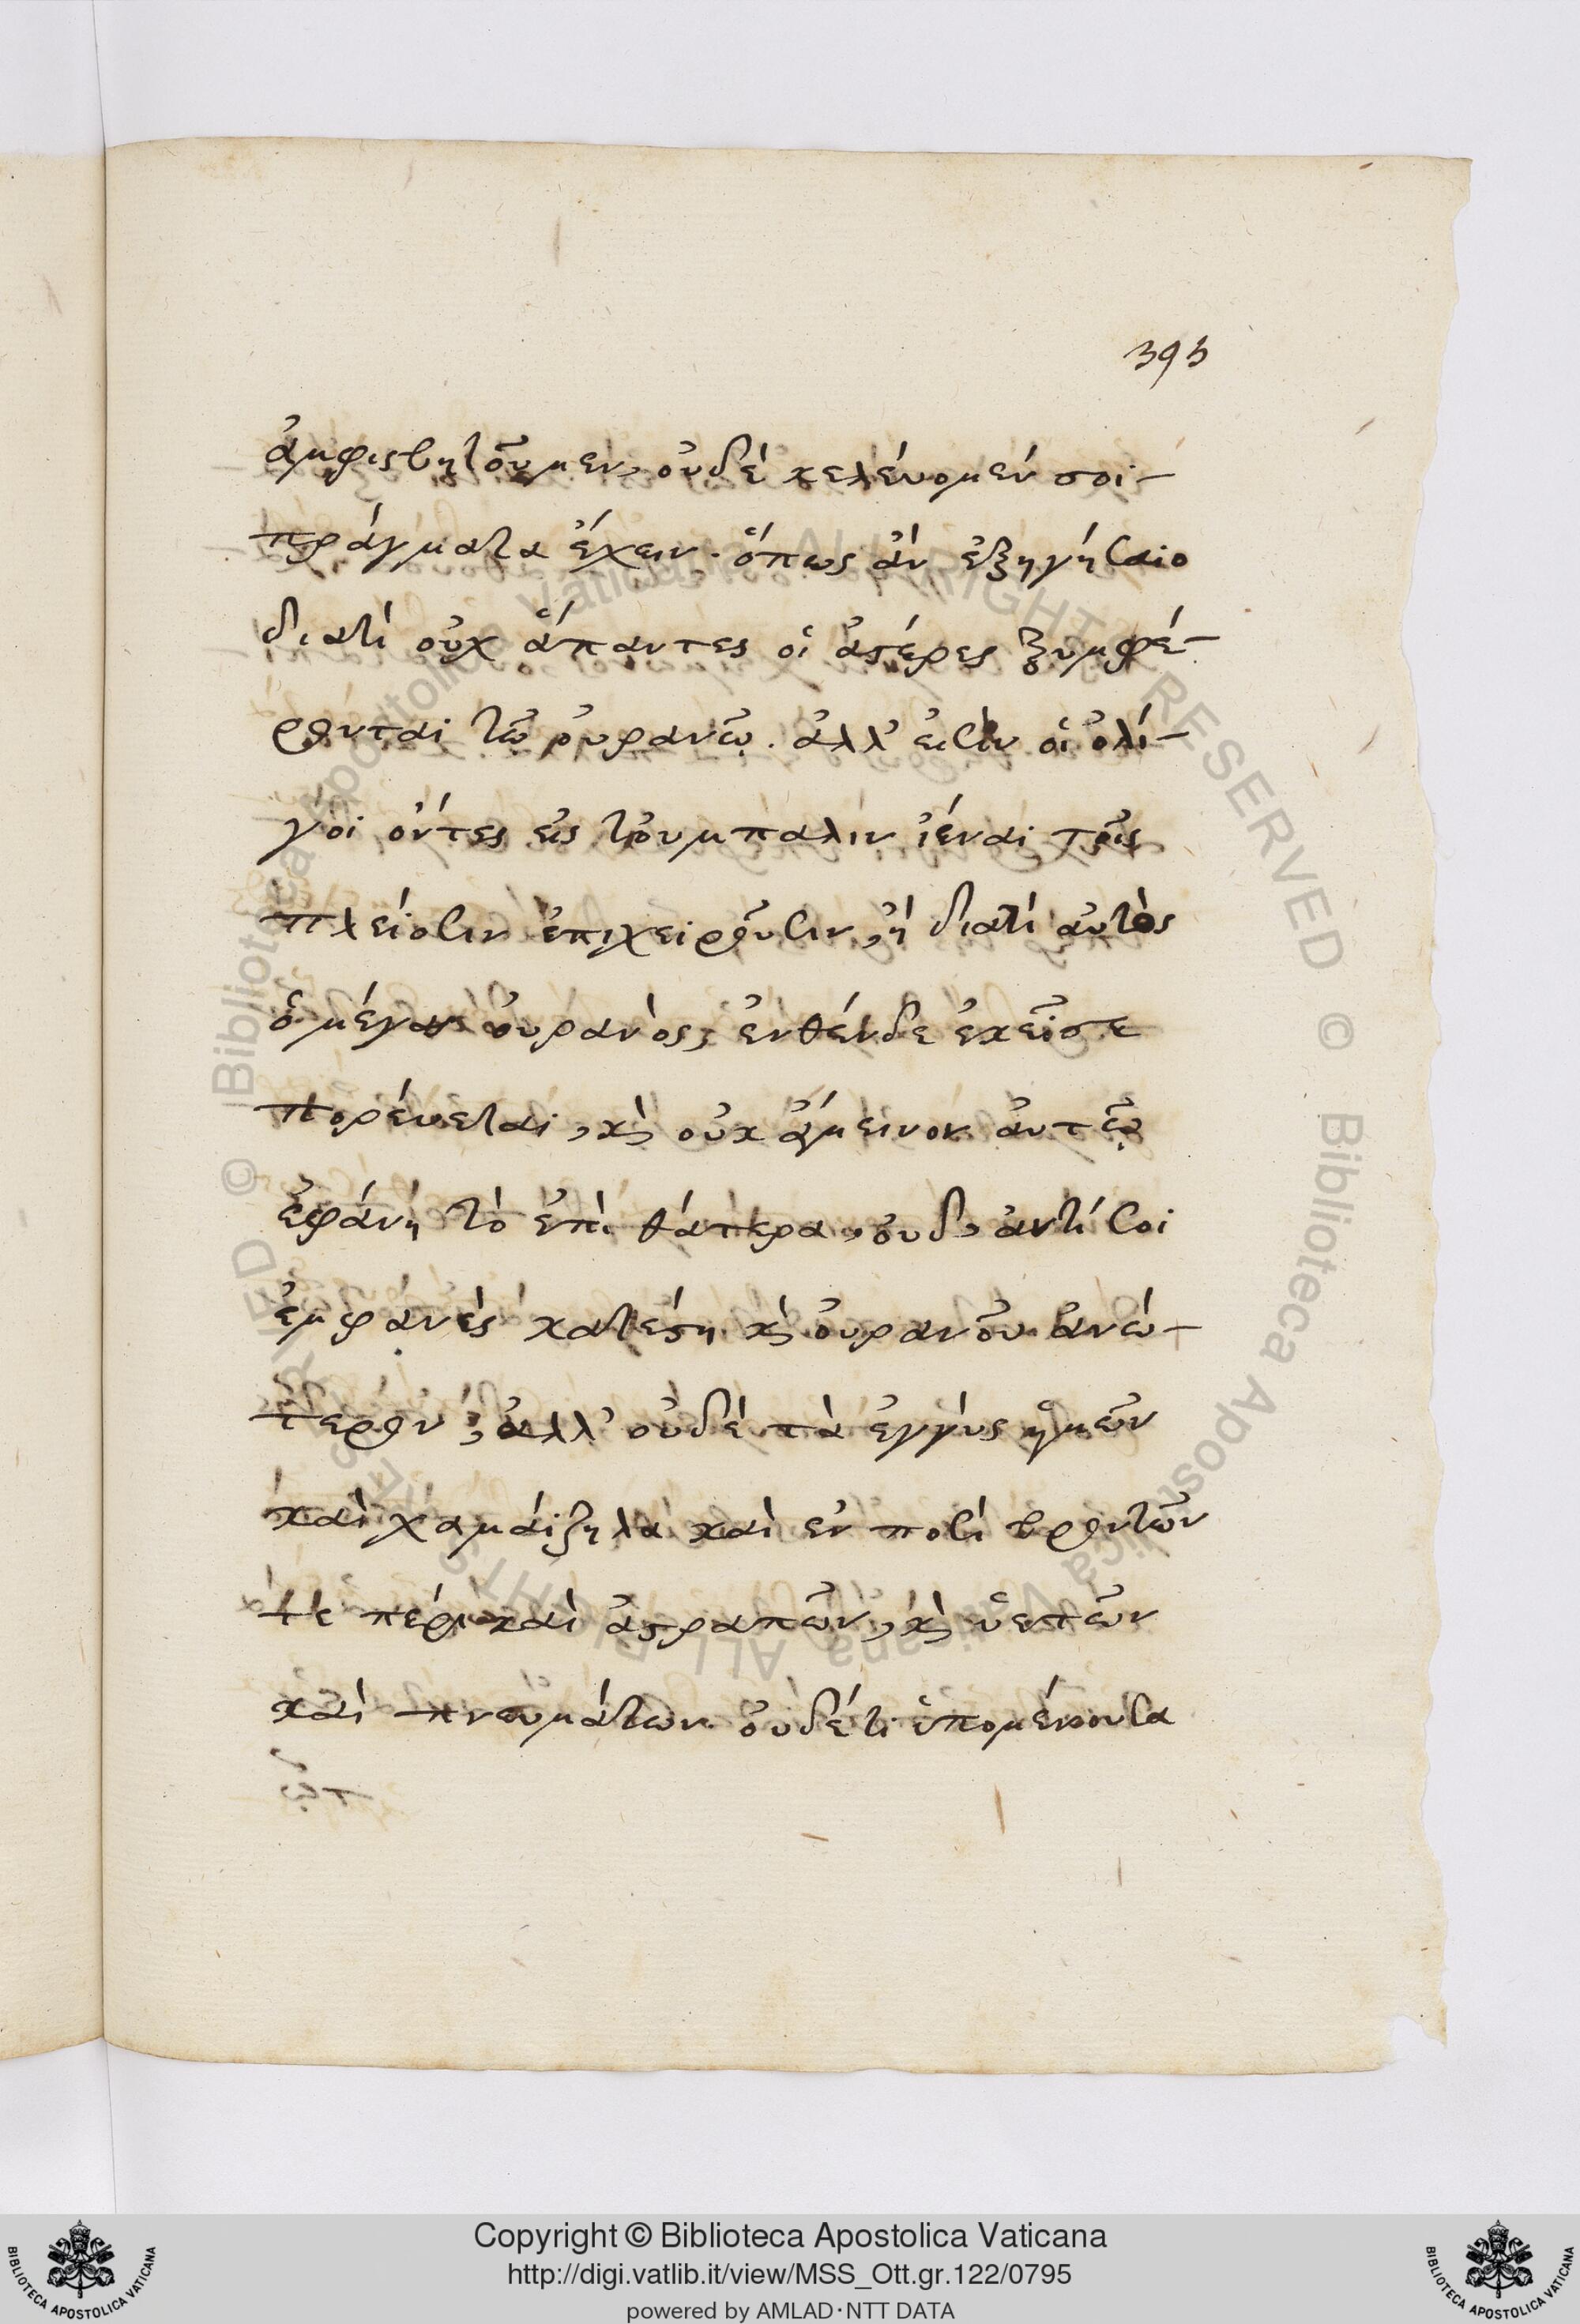 393
ἀμφισβητοῦμεν, οὐδὲ κελεύομέν σοι
πράγματα ἔχειν. ὅπως ἂν ἐξηγήσαιο
διατί οὐχ ἅπαντες οἱ ἀστέρες ξυμφέ-
ρονται τῷ οὐρανῷ. ἀλλ' εἰσὶν οἱ ὀλί-
γοι ὄντες εἰς τοὔμπαλιν ἰέναι τοῖς
πλείοσιν ἐπιχειροῦσιν, ἢ διατί αὐτὸς
ὁ μέγας οὐρανὸς, ἐνθένδε ἐκεῖσε
πορεύεται, κὶ οὐκ ἄμεινον αὐτῷ
ἐφάνη τὸ ἐπὶ θάτερα, οὐδ' ἀντί σοι
ἐμφανὲς κατέστη κὶ οὐρανοῦ ἀνώ-
τερον, ἀλλ' οὐδὲ τὰ ἐγγὺς ἡμῶν
καὶ χαμαίζηλα καὶ ἐν ποσί βροντῶν
τε πέρι καὶ ἀστραπῶν, κὶ ὑετῶν
καὶ πνευμάτων. οὐδέ τι ὑπομένοντα
Copyright © Biblioteca Apostolica Vaticana
http://digi.vatlib.it/view/MSS_Ott.gr.122/0795
powered by AMLAD·NTT DATA
BIBLIOTECA APOSTOLICA VATICANA
BIBLIOTECA APOSTOLICA VATICANA
© Biblioteca Apostolica Vaticana ALL RIGHTS RESERVED © Biblioteca Apostolica Vaticana ALL RIGHTS RESERVED